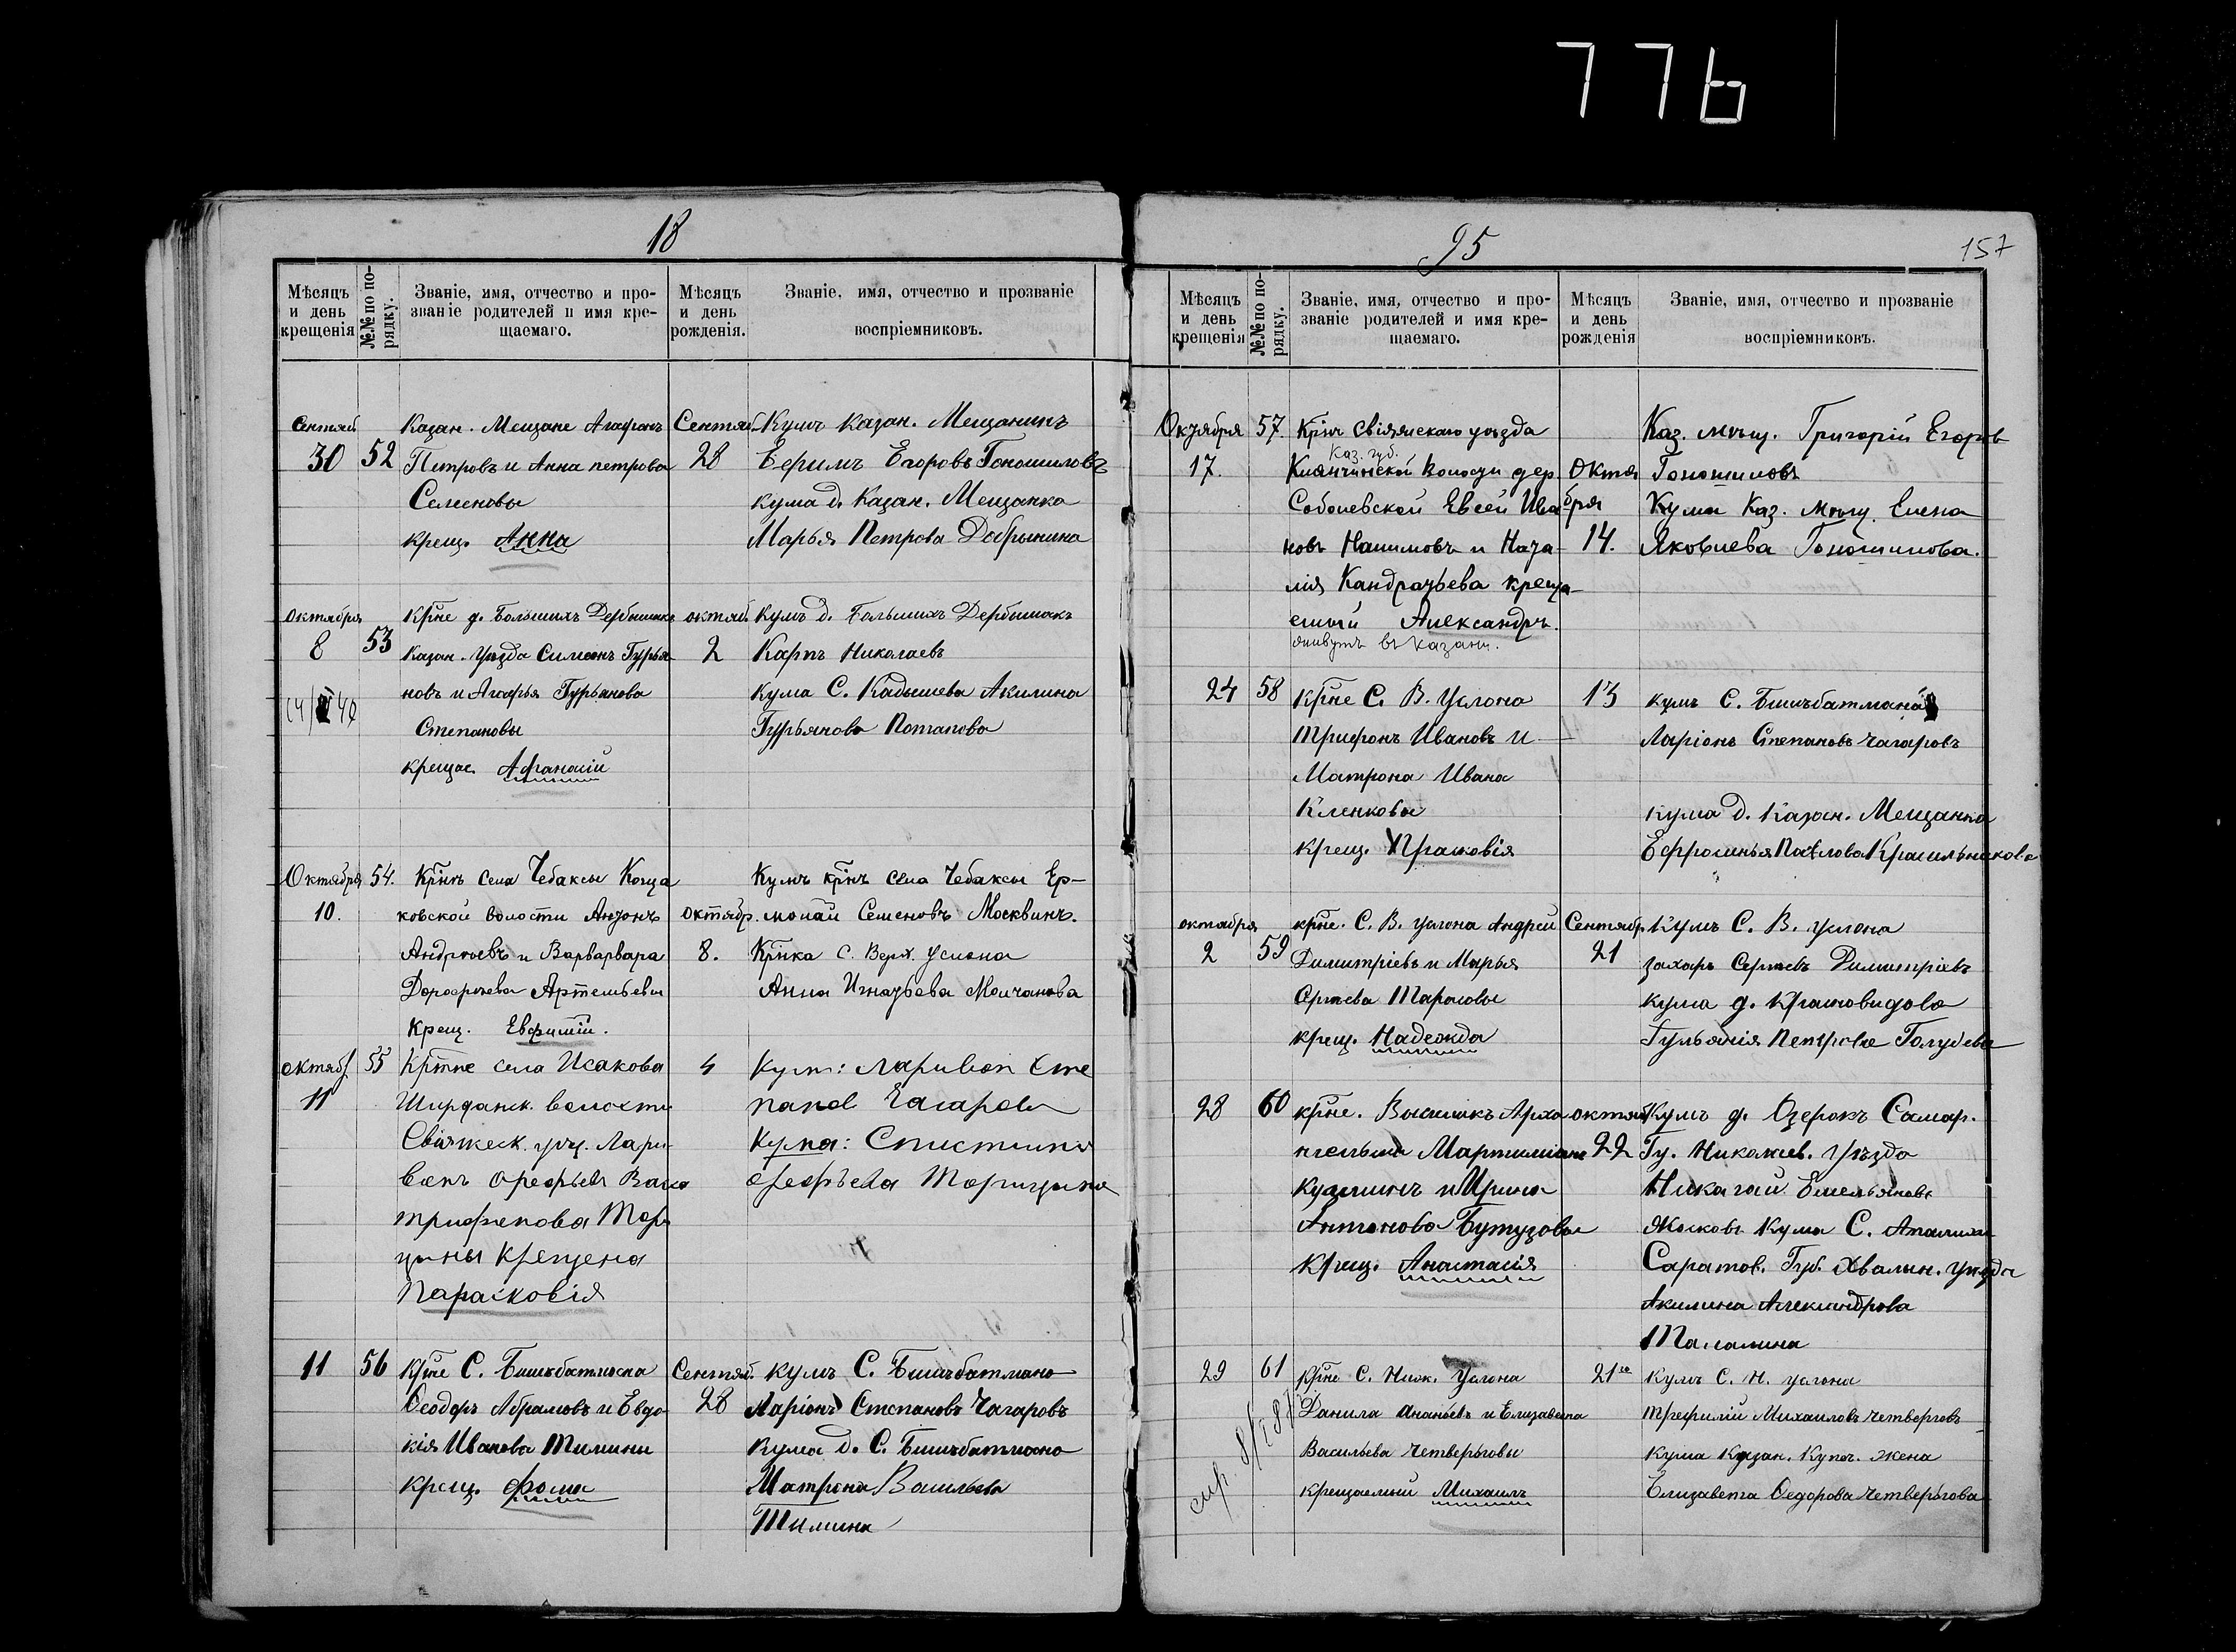 776
18
Мѣсяцъ и день крещенія
№№ по порядку.
Званіе, имя, отчество и прозваніе родителей и имя крещаемаго.
Мѣсяцъ и день рожденія.
Званіе, имя, отчество и прозваніе воспріемниковъ.
Сентяб. 30
52
Казан. Мещане Агафонъ
Петровъ и Анна петрова
Семеновы
крещ. Анна
Сентяб. 28
Кумъ Казан. Мещанинъ
Ефимъ Егоровъ Гоношиловъ
кума д. Казан. Мещанка
Марья Петрова Добрынина
октября 8
53
Крт̃не д. Большихъ Дербышекъ
Казан. Уѣзда Симеонъ Гурья-
новъ и Агафья Гурьянова
Степановы
крещае. Афанасіи
октяб. 2
Кумъ д. Большихъ Дербышекъ
Карпъ Николаевъ
кума С. Кадышева Акилина
Гурьянова Потапова
Октября 10.
54.
Крт̃нъ села Чебаксы Коща
ковской волости Антонъ
Андреевъ и Варварвара
Дорофеева Артемьевы
Крещ. Евфимій.
октябр. 8.
Кумъ крт̃нъ села Чебаксы Ер-
молай Семеновъ Москвинъ.
Крт̃нка С. Верх. Услона
Анна Игнатьева Молчанова
октяб. 11
55
Крт̃не села Исакова
Ширданск. волости
Свіяжск. уѣз. Лари-
вонъ Орефьевъ Васа
трифенова Тор
цаны Крещена
Парасковія
4
Кум: Ларивон Сте
панов Чагаров
Кума:
Орефьева
11
56
Крт̃не С. Бишбатмана
Ѳеодоръ Абрамовъ и Евдо-
кія Иванова Тимины
крещ. Фома
Сентяб. 28
кумъ С. Бишъбатмана
Ларіонъ Степановъ Чагаровъ
кума д. С. Бишъбатмана
Матрона Васильева
Тимина
95
157
Мѣсяцъ и день крещенія
№№ по порядку.
Званіе, имя, отчество и прозваніе родителей и имя крещаемаго.
Мѣсяцъ и день рожденія
Званіе, имя, отчество и прозваніе воспріемниковъ.
Октября 17.
57.
Крт̃нъ Свіяжскаго уѣзда
Каз. губ.
Клянчинской Волости дер
Соболевской Евсей Ива
новъ Налимовъ и Ната-
лія Кандратьева креща-
емый Александръ.
живутъ въ Казани.
Октября 14.
Каз. мѣщ. Григорій Егоров
Гоношиловъ
Кума Каз. мѣщ. Елена
Яковлева Гоношилова.
24
58
Крт̃не С. В. Услона
Трифонъ Ивановъ и
Матрона Ивана
Кленковы
крещ. Праковія
13
кумъ С. Бишъбатмана
Ларіонъ Степановъ Чагаровъ
кума д. Казан. Мещанка
Ефросинья Павлова Красильникова
октября 2
59
крт̃не. С. В. Услона Андрей
Димитріевъ и Марья
Сергѣева Тарасовы
крещ. Надежда
Сентябр. 21
Кумъ С. В. Услона
Захаръ Сергѣевъ Димитріевъ
кума д. Красновидова
Гульянія Петрова Голубева
28
60
крт̃не. Выселокъ Арха
нгельска Мартиміянъ
Кузминъ и Ирина
Антонова Бутузовы
крещ. Анастасія
октяб. 22
Кумъ д. Озерокъ Самар.
Гу. Николаев. Уѣзда
Никалай Емельяновъ
Жосковъ кума С. Апалихи
Саратов. Губ. Хвалын. уѣзда
Акилина Александрова
Таламина
29
61
Крт̃не С. Ниж. Услона
Данила Ананьевъ и Елизавета
Васильева Четверговы
крещаемый Михаилъ
21го
Кумъ С. Н. Услона
Трефилій Михаиловъ Четверговъ
кума Казан. Купеч. жена
Елизавета Ѳедорова Четвергова